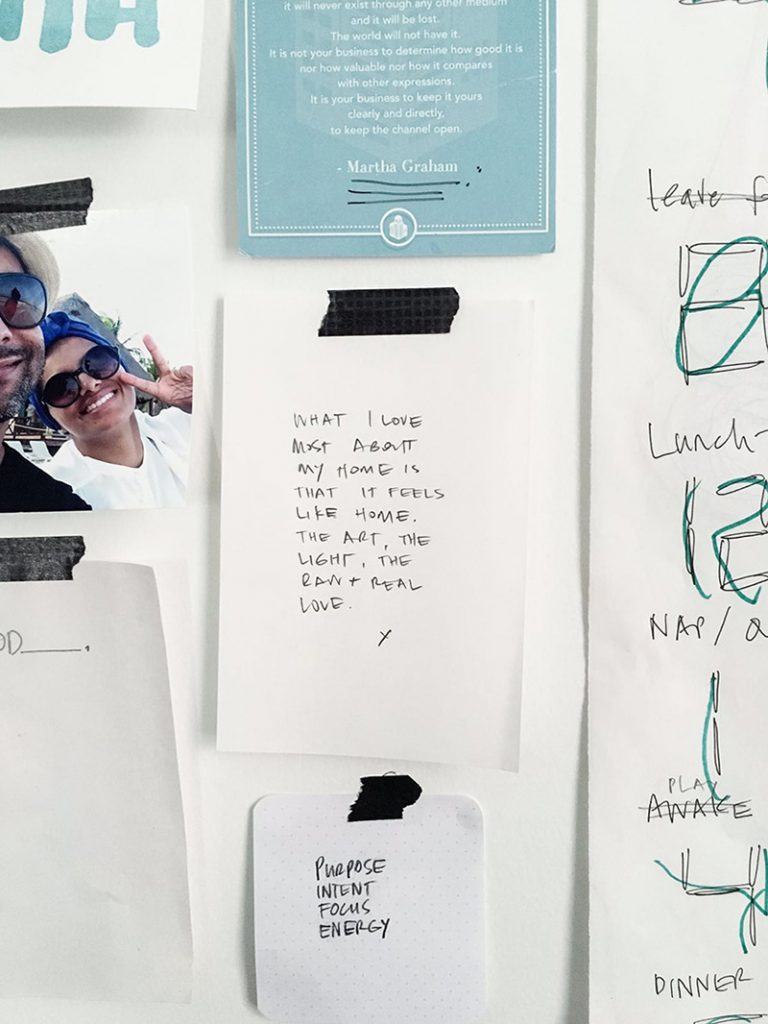 it will never exist through any other medium
and it will be lost.
The world will not have it.
It is not your business to determine how good it is
nor how valuable nor how it compares
with other expressions.
It is your business to keep it yours
clearly and directly,
to keep the channel open.
- Martha Graham
WHAT I LOVE
MOST ABOUT
MY HOME IS
THAT IT FEELS
LIKE HOME.
THE ART, THE
LIGHT, THE
RAW + REAL
LOVE.
X
PURPOSE
INTENT
FOCUS
ENERGY
leave
8
Lunch-
12
NAP /
1
PLAY
AWAKE
4
DINNER